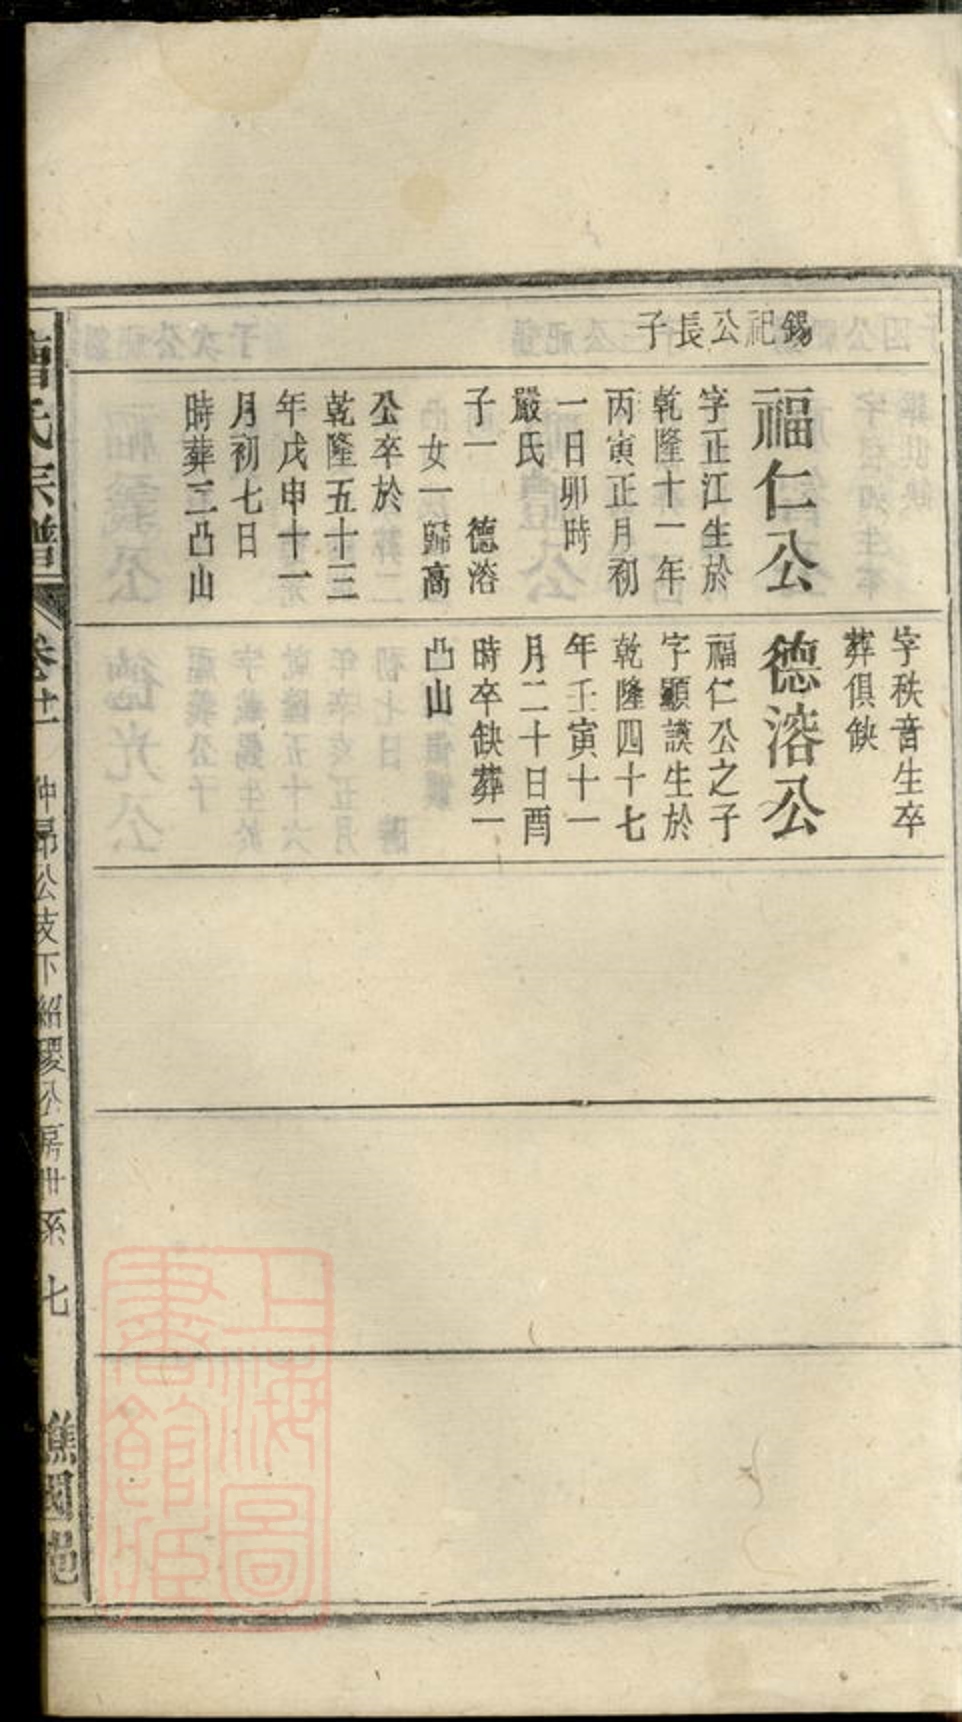 錫祀公長子
福仁公
字正江生於
乾隆十一年
丙寅正月初
一日卯時
嚴氏
子一　德溶
女一歸高
公卒於
乾隆五十三
年戊申十一
月初七日
時葬三凸山
字秩音生卒
葬俱缺
德溶公
福仁公之子
字顯謨生於
乾隆四十七
年壬寅十一
月二十日酉
時卒缺葬一
凸山
曹氏宗譜
卷廿
仲昂公支下紹稷公房世系　七
譙國
上海圖
書館